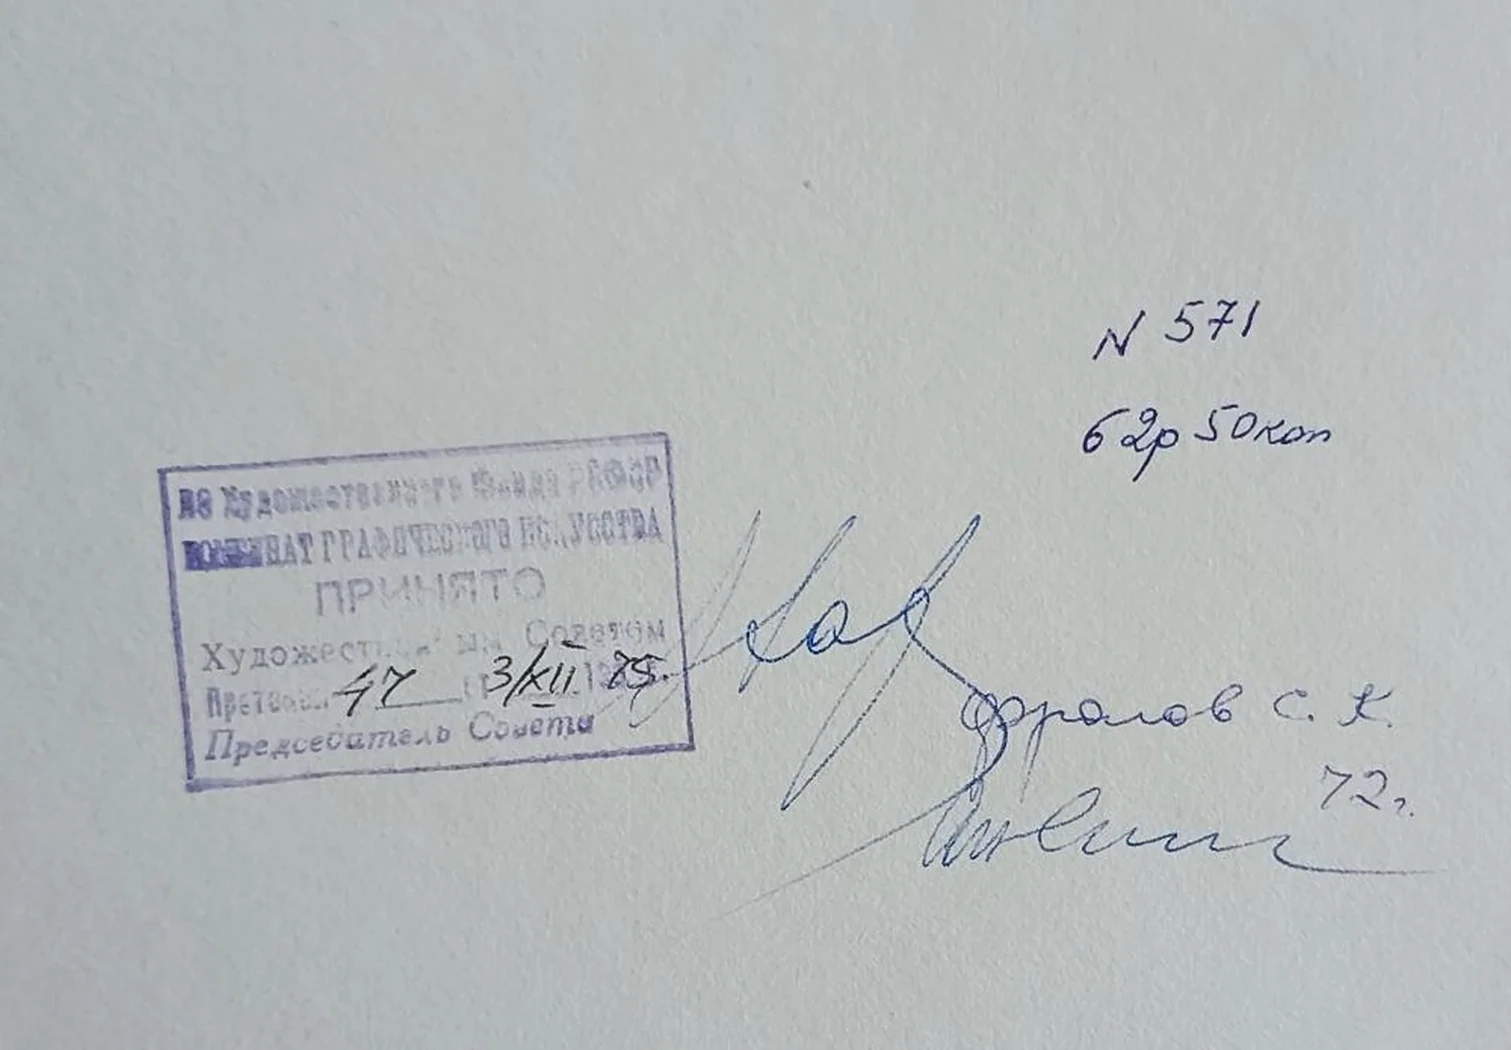 N 571
62р 50коп
ЛО Художественного Фонда РСФСР
КОМБИНАТ ГРАФИЧЕСКОГО ИСКУССТВА
ПРИНЯТО
Художественным Советом
Протокол 47 3/XII 1975.
Председатель Совета
Фролов С. К.
72г.